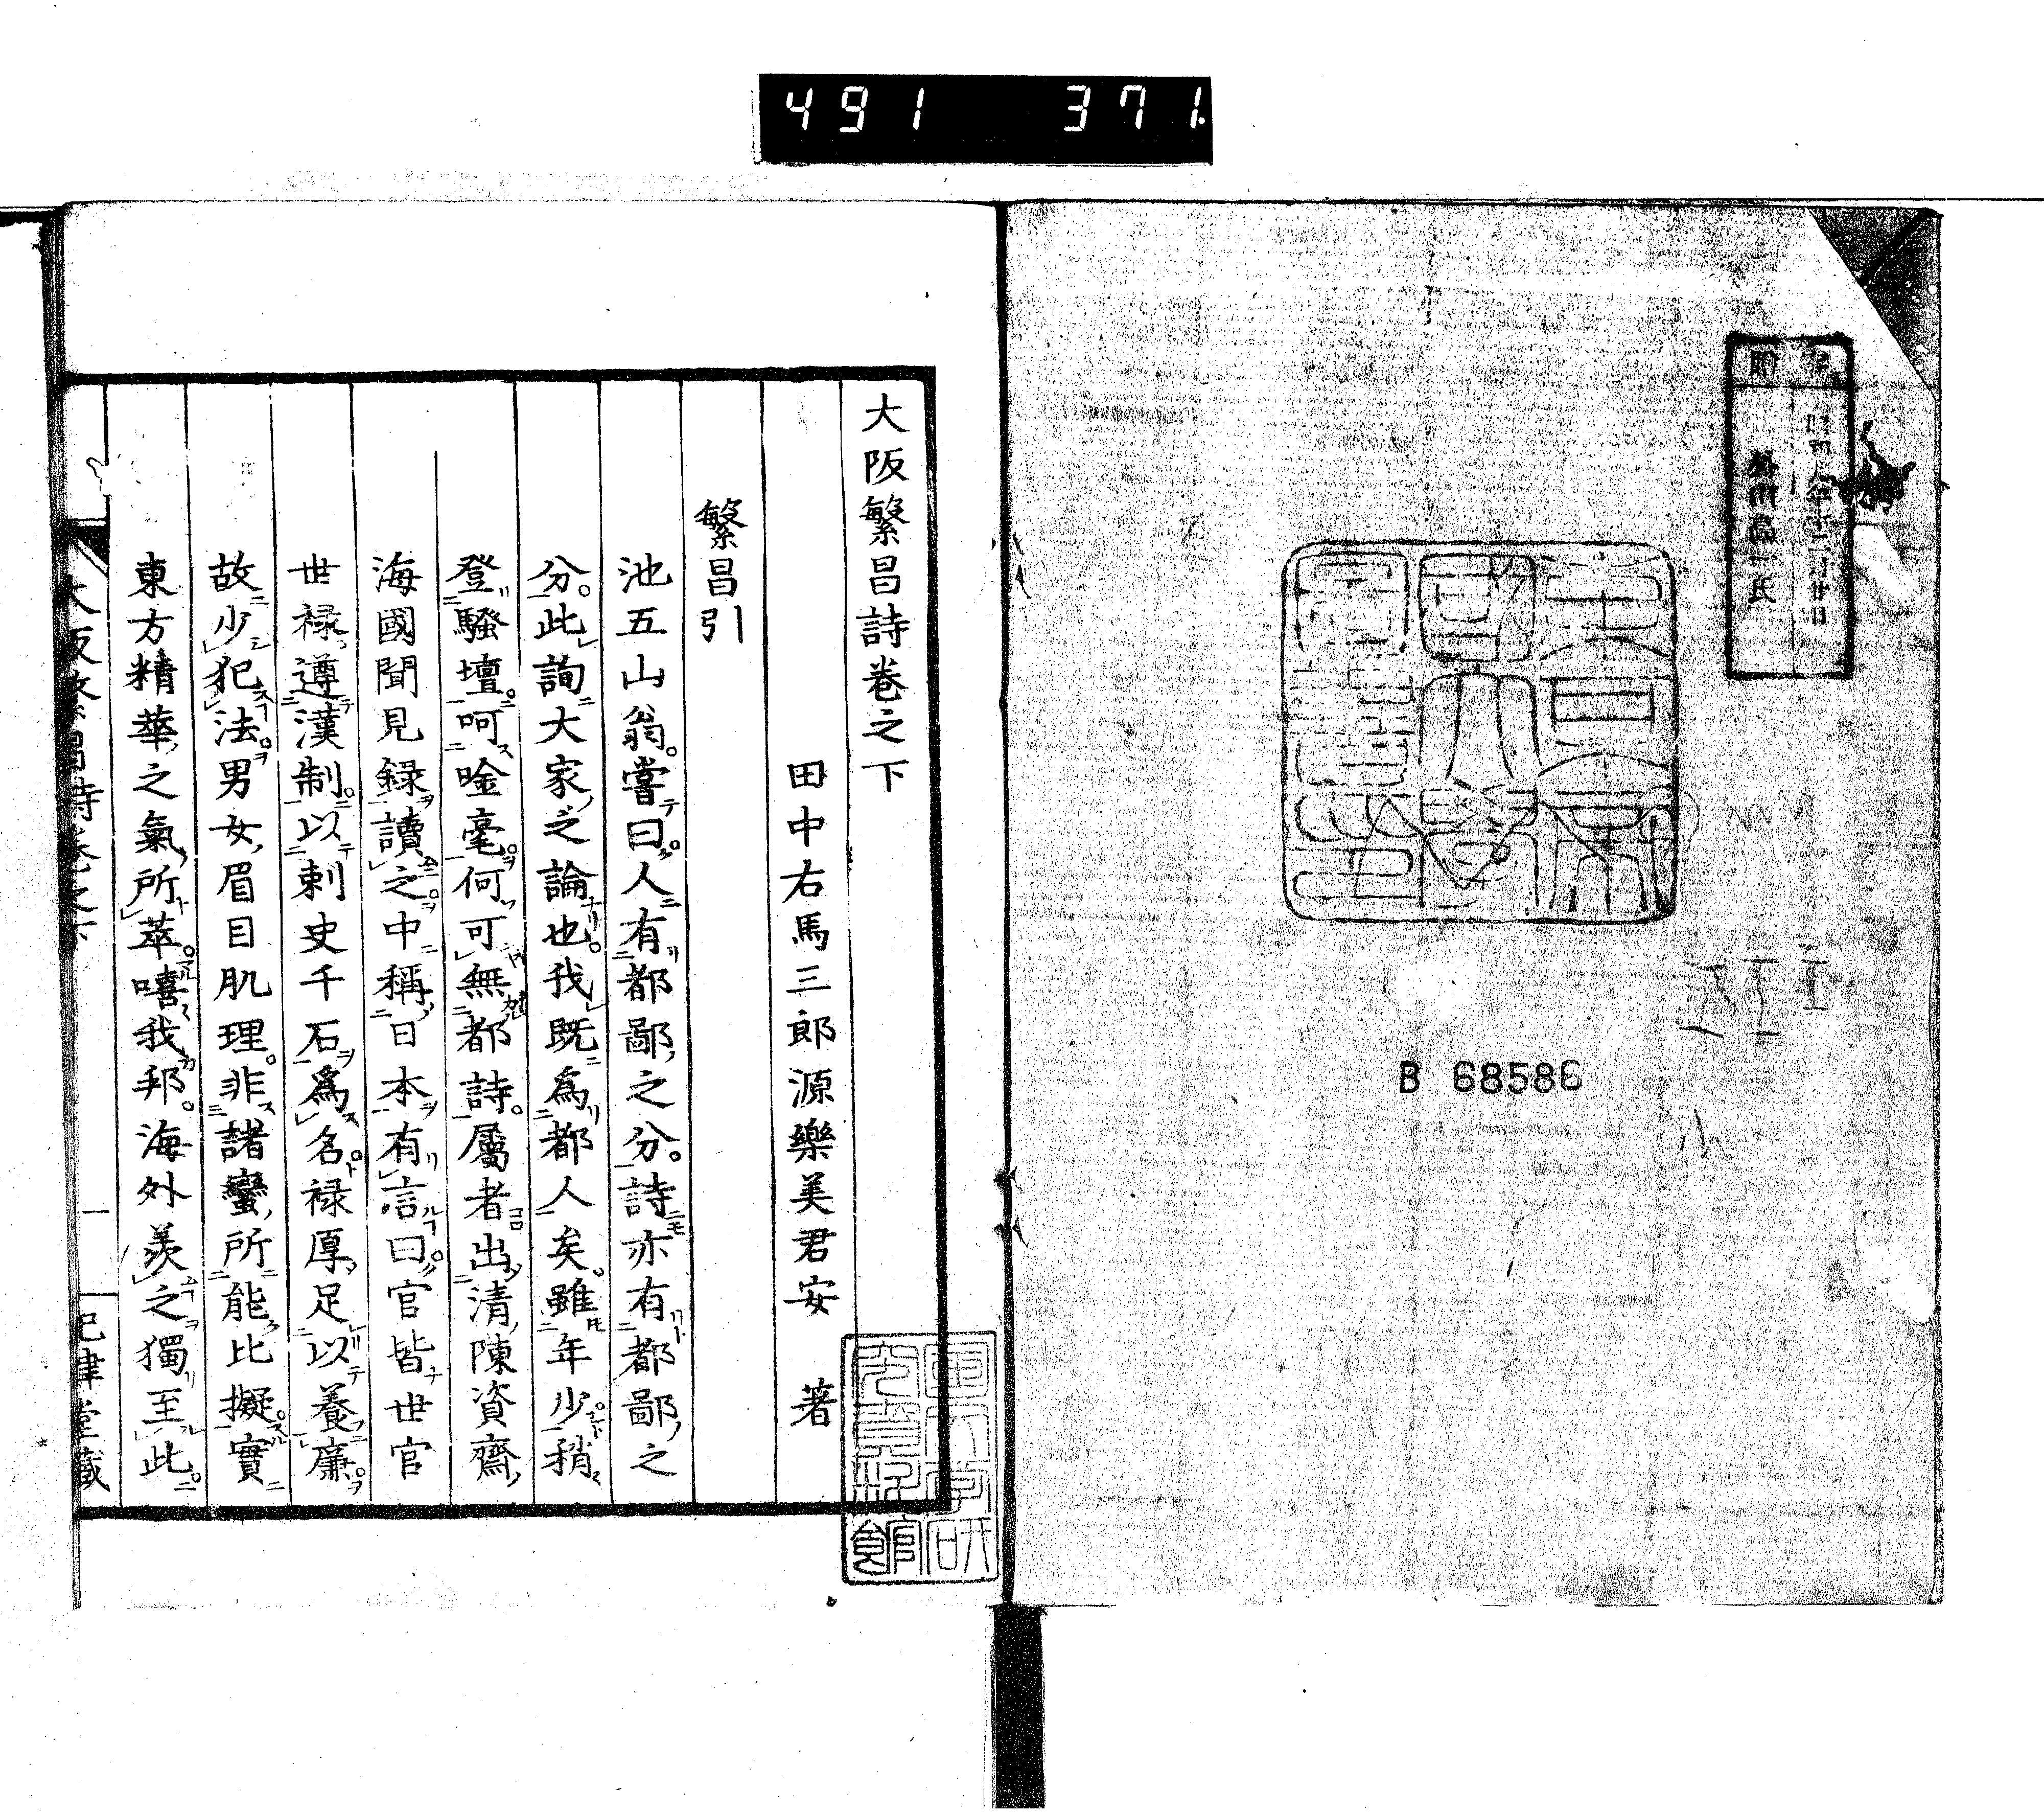 491 371
大阪繁昌詩卷之下
田中右馬三郎源樂美君安 著
繁昌引
池五山翁嘗曰人有都鄙之分詩亦有都鄙之
分此詢大家之論也我既爲都人矣雖年少稍
登騷壇呵唫毫何可無都詩屬者出清陳資齋
海國聞見録讀之中稱日本有言曰官皆世官
世禄遵漢制以刺史千石爲名禄厚足以養廉
故少犯法男女眉目肌理非諸蠻所能比擬實
東方精華之氣所萃嘻我邦海外羨之獨至此
B 68586